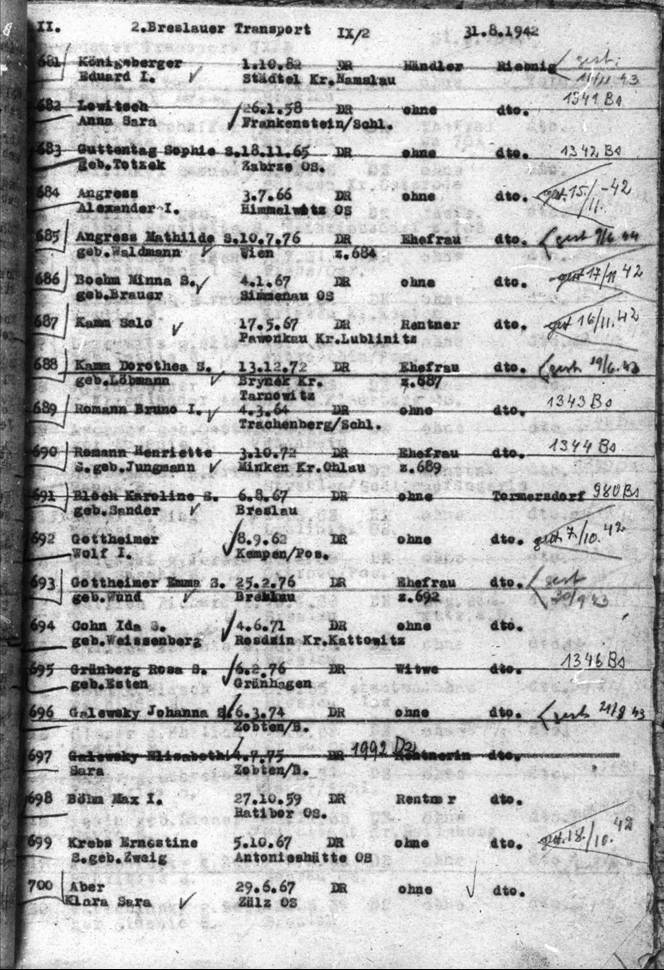 II. 2.Breslauer Transport IX/2 31.8.1942
681 Königsberger 1.10.82 DR Händler Riebnig gest.
Eduard I. Städtel Kr.Namslau 43
682 Lewitsch 26.1.58 DR ohne dto. 1341 Bs
Anna Sara Frankenstein/Schl.
683 Guttentag Sophie S. 18.11.65 DR ohne dto. 1342 Bs
geb.Totzek Zabrze OS.
684 Angress 3.7.66 DR ohne dto. gest 15./11. 42
Alexander I. Himmelwitz OS
685 Angress Mathilde S. 10.7.76 DR Ehefrau dto. gest 9/6. 44
geb.Waldmann Wien z.684
686 Boehm Minna S. 4.1.67 DR ohne dto. gest 17/11 42
geb.Brauer Simmenau OS
687 Kamm Salo 17.5.67 DR Rentner dto. gest 16/11. 42
Pawonkau Kr.Lublinitz
688 Kamm Dorothea S. 13.12.72 DR Ehefrau dto. gest 29/6. 43
geb.Löbmann Brynek Kr. z.687
Tarnowitz
689 Romann Bruno I. 4.3.64 DR ohne dto. 1343 Bs
Trachenberg/Schl.
690 Romann Henriette 3.10.72 DR Ehefrau dto. 1344 Bs
S.geb.Jungmann Minken Kr.Ohlau z.689
691 Bloch Karoline S. 6.8.67 DR ohne Tormersdorf 980 Bs
geb.Sander Breslau
692 Gottheimer 8.9.62 DR ohne dto. gest 7./10. 42
Wolf I. Kempen/Pos.
693 Gottheimer Emma S. 25.2.76 DR Ehefrau dto. gest
geb.Wund Breslau z.692 30/9 43
694 Cohn Ida S. 4.6.71 DR ohne dto.
geb.Weissenberg Rosdzin Kr.Kattowitz
695 Grünberg Rosa S. 6.2.76 DR Witwe dto. 1346 Bs
geb.Esten Grünhagen
696 Galewsky Johanna S. 6.3.74 DR ohne dto. gest 21/9 43
Zobten/B.
697 Galewsky Elisabeth 4.7.75 DR 1992 Dz Rentnerin dto.
Sara Zobten/B.
698 Böhm Max I. 27.10.59 DR Rentner dto.
Ratibor OS.
699 Krebs Ernestine 5.10.67 DR ohne dto. gest. 18./10. 42
S.geb.Zwaig Antonieshütte OS
700 Aber 29.6.67 DR ohne dto.
Klara Sara Zülz OS